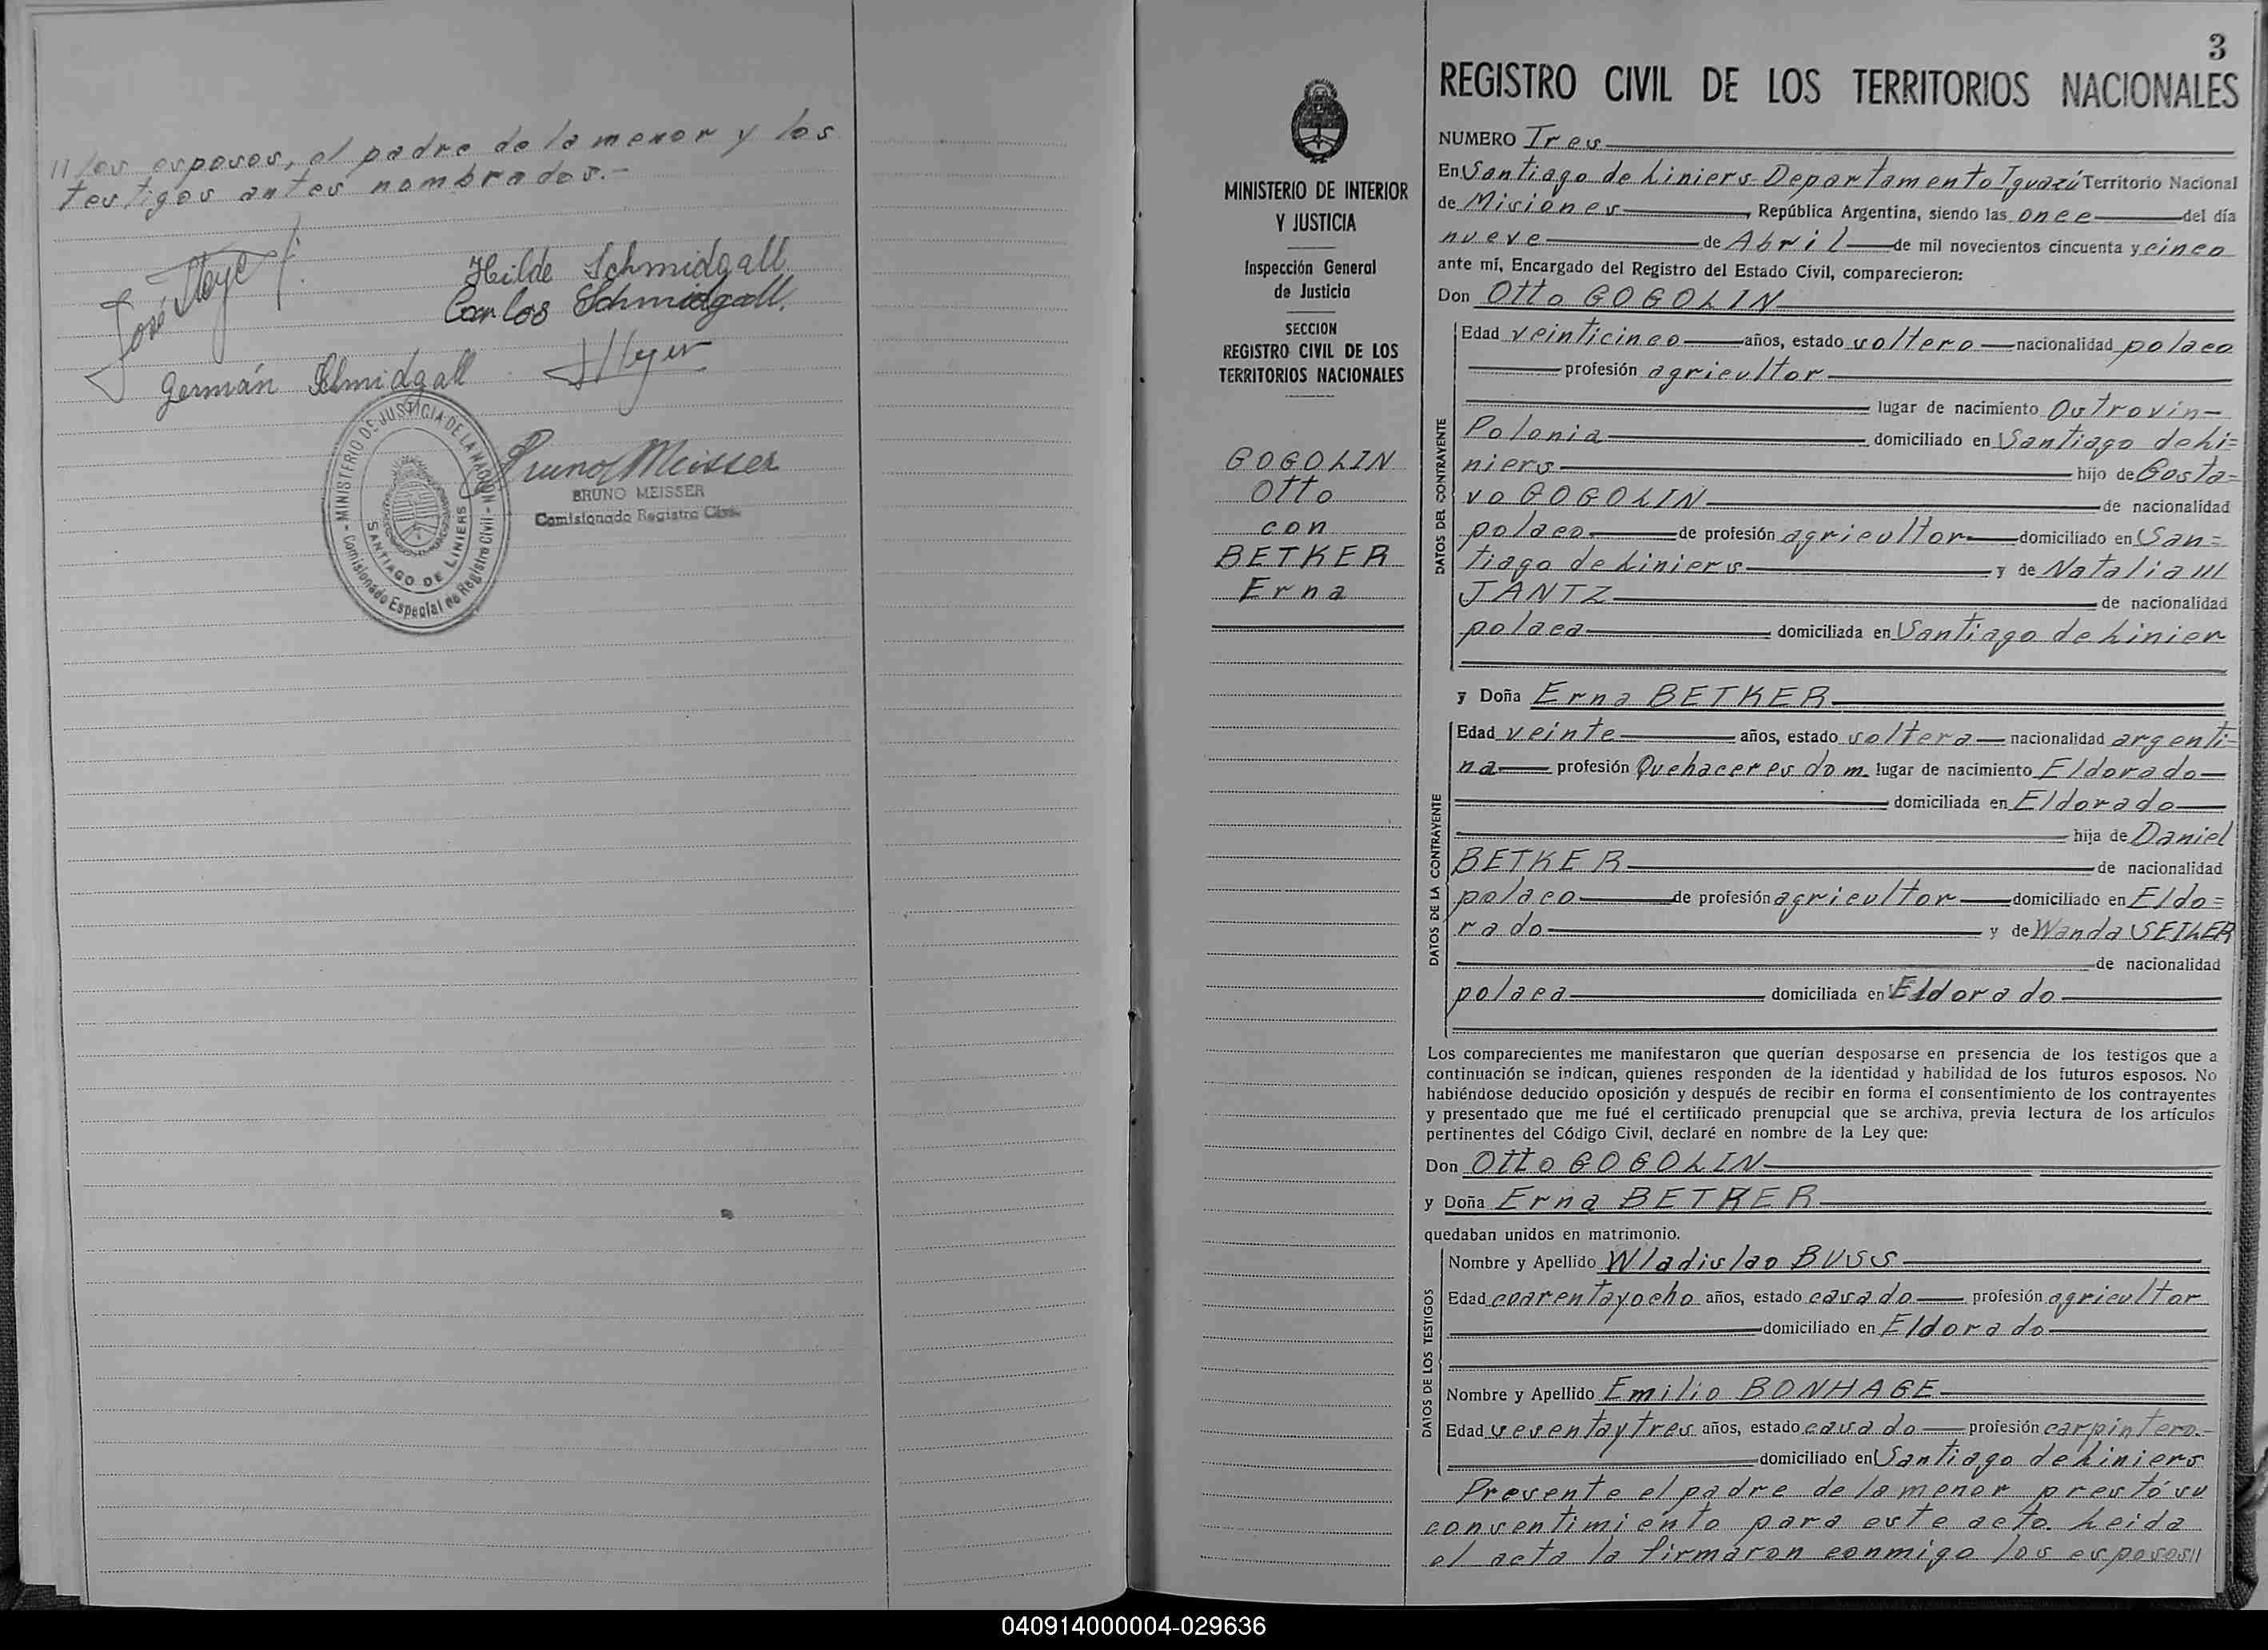 11 los esposos, el padre de la menor y los
testigos antes nombrados.-
José Meyer
Hilde Schmidgall
Carlos Schmidgall.
Germán Schmidgall
JMeyer
MINISTERIO DE JUSTICIA DE LA NACION - Comisionado Especial de Registro Civil -
SANTIAGO DE LINIERS
Bruno Meisser
BRUNO MEISSER
Comisionado Registro Civil
3
MINISTERIO DE INTERIOR
Y JUSTICIA
Inspección General
de Justicia
SECCION
REGISTRO CIVIL DE LOS
TERRITORIOS NACIONALES
GOGOLIN
Otto
con
BETKER
Erna
REGISTRO CIVIL DE LOS TERRITORIOS NACIONALES
NUMERO Tres
En Santiago de Liniers-Departamento Iguazú Territorio Nacional
de Misiones, República Argentina, siendo las once del día
nueve de Abril de mil novecientos cincuenta y cinco
ante mí, Encargado del Registro del Estado Civil, comparecieron:
Don Otto GOGOLIN
DATOS DEL CONTRAYENTE
Edad veinticinco años, estado soltero nacionalidad polaco
profesión agricultor
lugar de nacimiento Ostrovin-
Polonia domiciliado en Santiago de Li=
niers hijo de Gosta=
vo GOGOLIN de nacionalidad
polaco de profesión agricultor domiciliado en San=
tiago de Liniers y de Natalia
JANTZ de nacionalidad
polaca domiciliada en Santiago de Linier
y Doña Erna BETKER
DATOS DE LA CONTRAYENTE
Edad veinte años, estado soltera nacionalidad argenti=
na profesión Quehaceres dom. lugar de nacimiento Eldorado
domiciliada en Eldorado
hija de Daniel
BETKER de nacionalidad
polaco de profesión agricultor domiciliado en Eldo=
rado y de Wanda SEILER
de nacionalidad
polaca domiciliada en Eldorado
Los comparecientes me manifestaron que querían desposarse en presencia de los testigos que a
continuación se indican, quienes responden de la identidad y habilidad de los futuros esposos. No
habiéndose deducido oposición y después de recibir en forma el consentimiento de los contrayentes
y presentado que me fué el certificado prenupcial que se archiva, previa lectura de los artículos
pertinentes del Código Civil, declaré en nombre de la Ley que:
Don Otto GOGOLIN
y Doña Erna BETKER
quedaban unidos en matrimonio.
DATOS DE LOS TESTIGOS
Nombre y Apellido Wladislao BUSS
Edad cuarentayocho años, estado casado profesión agricultor
domiciliado en Eldorado
Nombre y Apellido Emilio BONHAGE
Edad sesentaytres años, estado casado profesión carpintero.-
domiciliado en Santiago de Liniers
Presente el padre de la menor prestó su
consentimiento para este acto. Leida
el acta la firmaron conmigo los esposos11
040914000004-029636